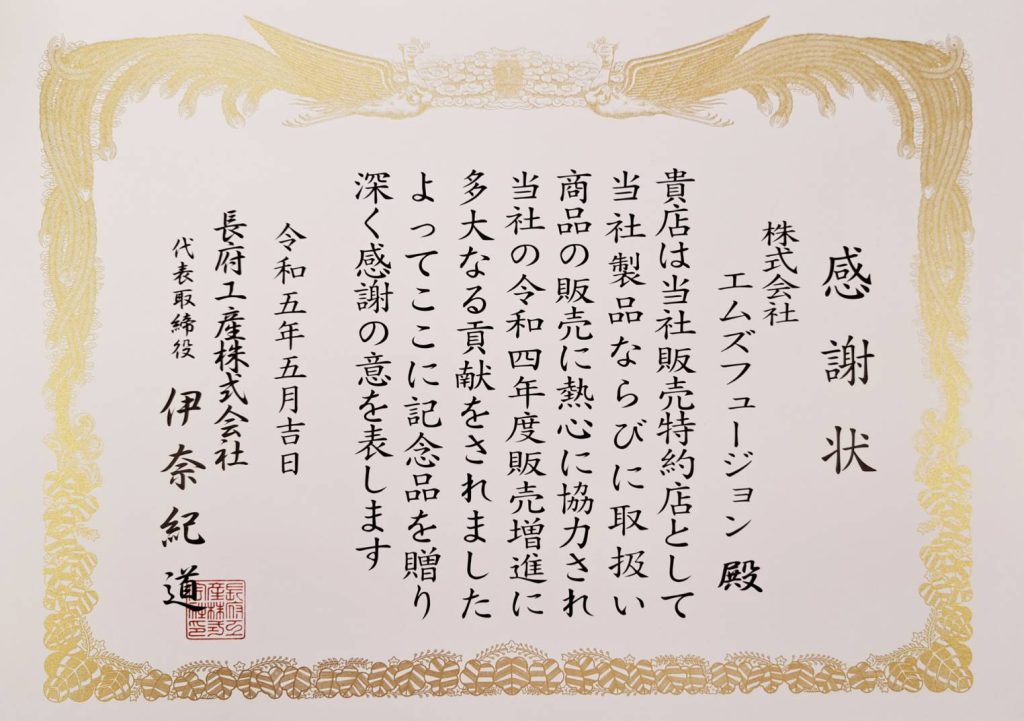 感謝状
株式会社
エムズフュージョン 殿
貴店は当社販売特約店として
当社製品ならびに取扱い
商品の販売に熱心に協力され
当社の令和四年度販売増進に
多大なる貢献をされました
よってここに記念品を贈り
深く感謝の意を表します
令和五年五月吉日
長府工産株式会社
代表取締役 伊奈紀道